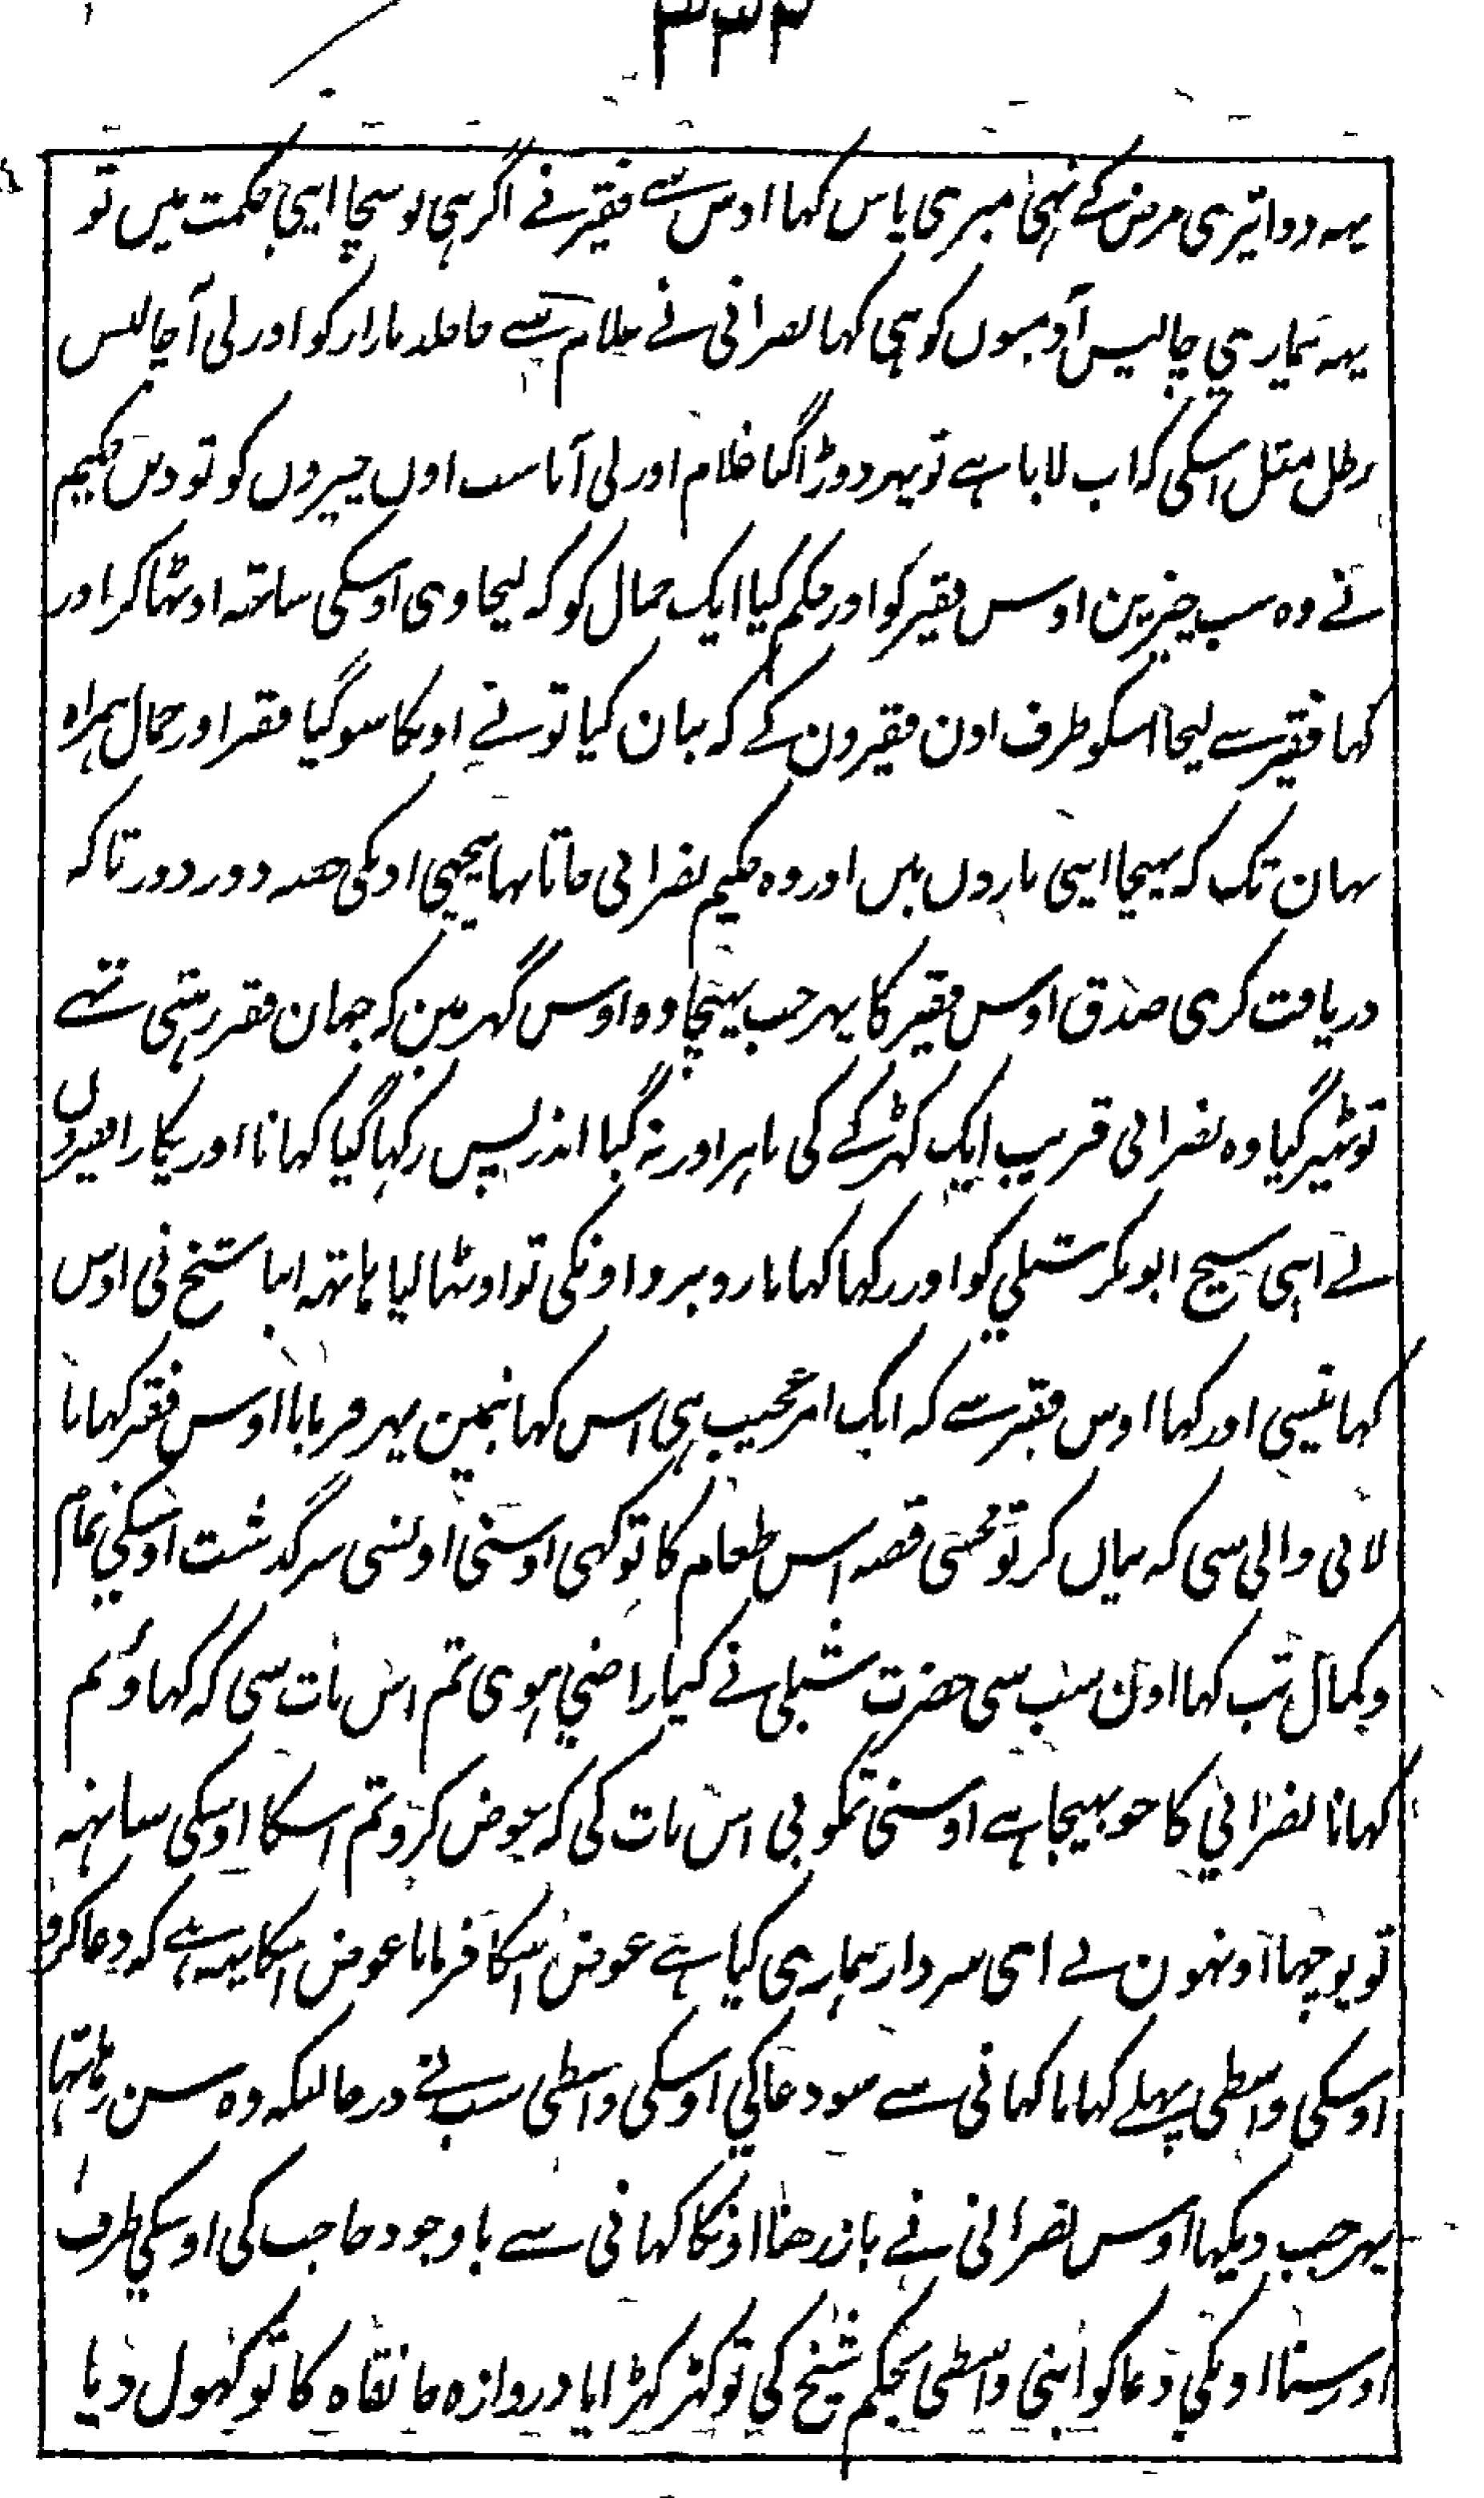 یہہ دوا تیری مرض کے نہی میری پاس کہا اوس سے فقیر نے اگر ہی تو سچا اپنی حکمت میں تو
یہہ بیماری چالیس آدمیوں کو ہی کہا نصرانی نے غلام سے جا جلد بازار کو اور لی آ چالیس
رطل مثل اسکی کہ اب لایا ہے تو پہر دوڑا گیا غلام اور لی آیا سب اون چیزوں کو تو دیں حکیم
نے وہ سب چیزین اوس فقیر کو اور حکم کیا ایک حمال کو کہ لیجاوی اوسکی ساتھہ اوٹھا کر اور
کہا فقیر سے لیجا اسکو طرف اون فقیرون کے کہ بیان کیا تو نے اونکا سو گیا فقیر اور حمال ہمراہ
یہان تک کہ پہنچا اپنی یاروں میں اور وہ حکیم نصرانی جاتا تہا پیچہی اونکی دور دور تاکہ
دریافت کری صدق اوس فقیر کا پہر جب پہنچا وہ اوس گہر مین کہ جہان فقیر رہتی تہے
تو ٹہیر گیا وہ نصرانی قریب ایک کہڑکے کی باہر اور نہ گیا اندر پس رکہا گیا کہانا اور پکارا فقیروں
نے اپنی شیخ ابو بکر شبلی کو اور رکہا کہانا روبرو اونکی تو اوٹہا لیا ہاتہہ اپنا شیخ نی اوس
کہانیسی اور کہا اوس فقیر سے کہ ایک امر عجیب ہی اس کہانیمین پہر فرمایا اوس فقیر کہانا
لانی والی سی کہ بیاں کر تو مجہسی قصہ اس طعام کا تو کہی اوسنی اونسی سرگذشت اوسکی تمام
و کمال تب کہا اون سب سی حضرت شبلی نے کیا راضی ہوی تم اس بات سی کہ کہاؤ تم
کہانا نصرانی کا جو بہیجا ہے اوسنی تمکو بی اس بات کی کہ عوض کرو تم اسکا اوسکی ساتہہ
تو پوچہا اونہون نے ای سردار ہماری کیا ہے عوض اسکا فرمایا عوض اسکا یہہ ہے کہ دعا کرو
اوسکی واسطی پہلے کہانا کہانی سے سو دعا کی اوسکی واسطی سب نے در حالیکہ وہ سن رہا تہا
پہر جب دیکہا اوس نصرانی نے باز رہنا اونکا کہانی سے باوجود حاجب کی اوسکی طرف
اور سنا اونکی دعا کو اپنی واسطی بحکم شیخ کی تو کہڑکہڑایا دروازہ خانقاہ کا تو کہول دیا